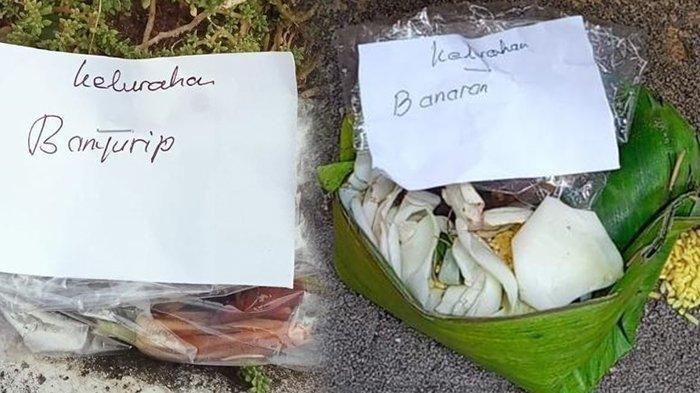 Kelurahan
Banyurip
Kelurahan
Banaran